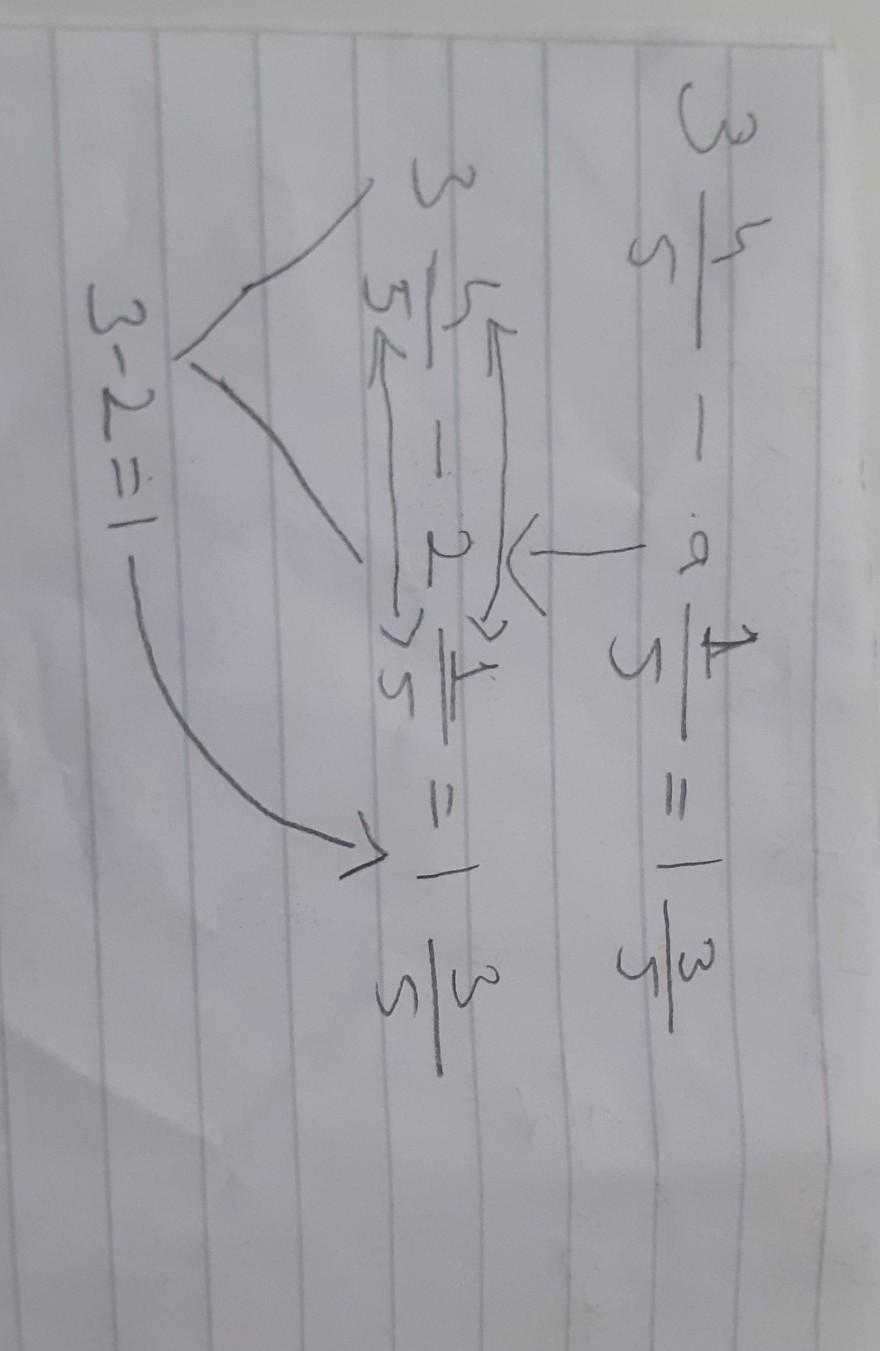 3 4/5 - a 1/5 = 1 3/5
3 4/5 - 2 1/5 = 1 3/5
3-2=1